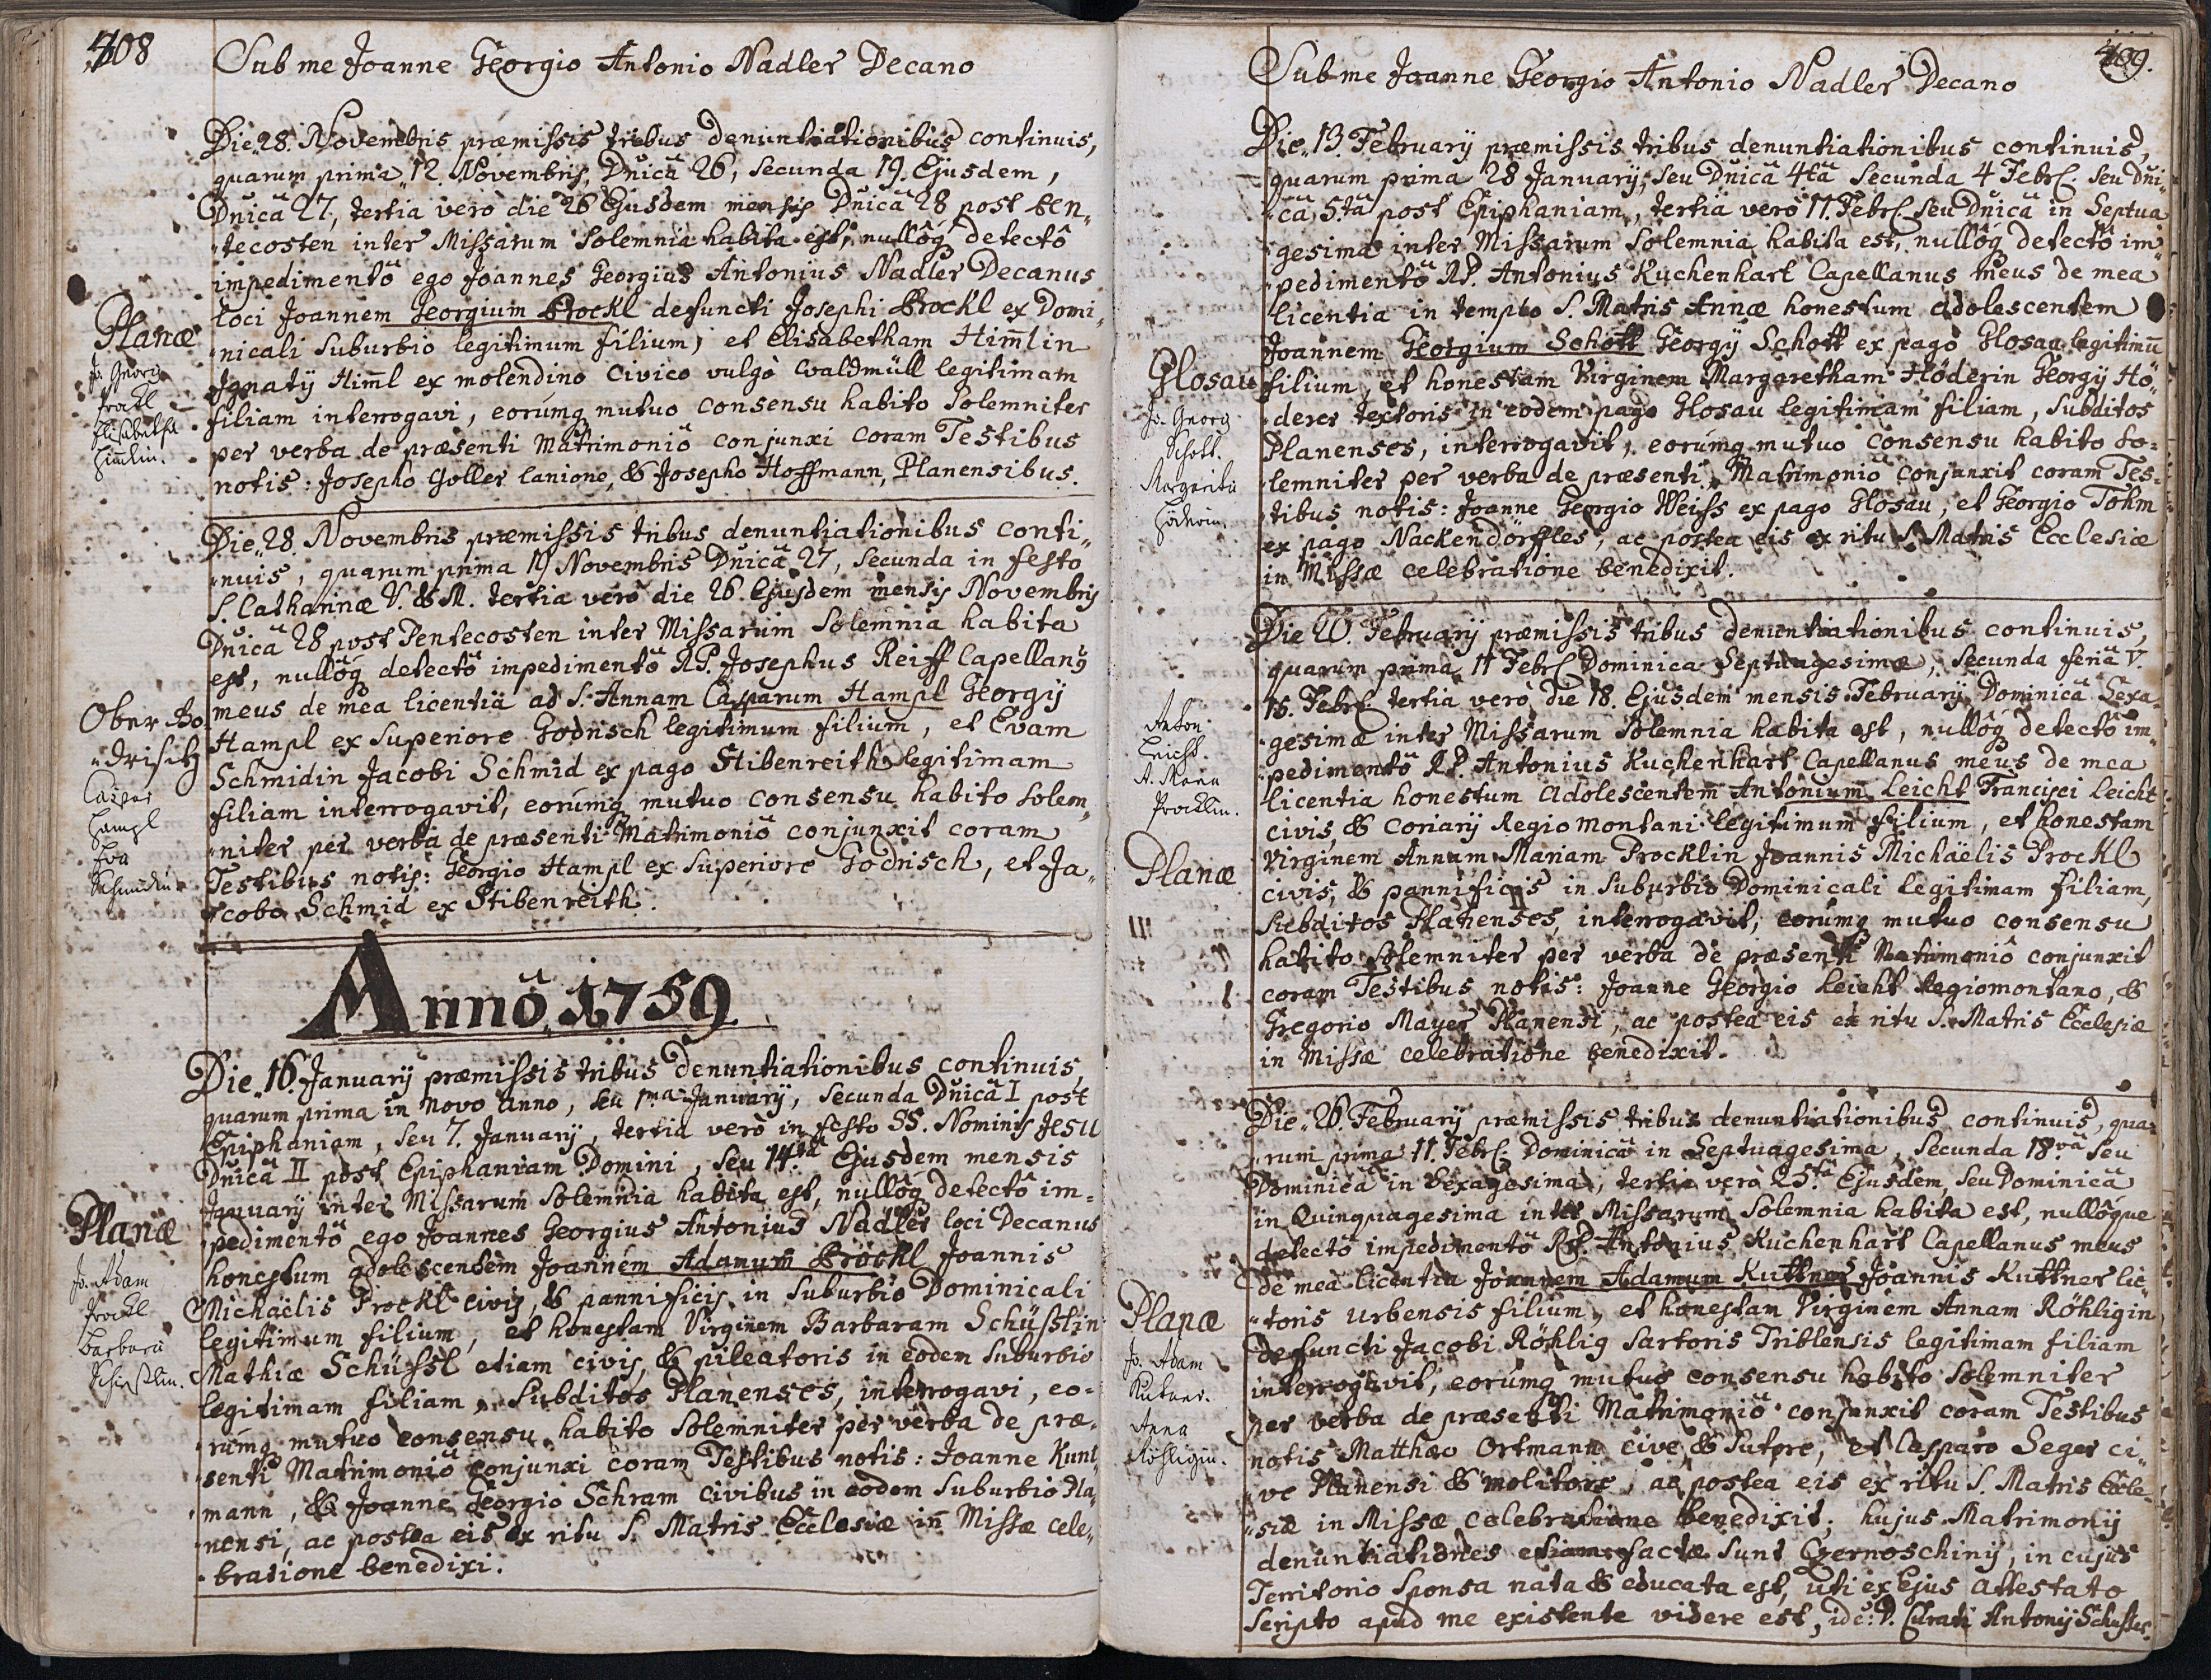 408
Sub me Joanne Georgio Antonio Nadler Decano
Die 28. Novembris præmissis tribus denuntiationibus continuis,
quarum prima 12. Novembris, Dnicâ 26, secunda 19. Ejusdem,
Dnicâ 27, tertia verò die 26 Ejusdem mensis Dnicâ 28 post Pen„
„tecosten inter Missarum Solemnia habita est, nullôq detectô
impedimentô ego Joannes Georgius Antonius Nadler Decanus
loci Joannem Georgium Prockl defuncti Josephi Prockl ex Domi„
„nicali suburbio legitimum filium, et Elisabetham Him̄lin
Ignatij Him̄l ex molendino Civico vulgò Waldmüll legitimam
filiam interrogavi, eorúmq mutuo consensu habito Solemniter
per verba de præsenti Matrimoniô conjunxi coram Testibus
notis: Josepho Goller lanione, & Josepho Hoffmann, Planensibus.
Planæ
Jo. Georg
Prockl
Elisabetha
Him̄lin.
Die 28. Novembris præmissis tribus denuntiationibus conti„
„nuis, quarum prima 19 Novembris Dnicâ 27, secunda in festo
S. Catharinæ V. & M. tertia verò die 26. Ejusdem mensis Novembris
Dnicâ 28 post Pentecosten inter Missarum Solemnia habita
est, nullôq detectô impedimentô R.P. Josephus Reiff Capellanq
meus de mea licentiâ ad S. Annam Casparum Hampl Georgij
Hampl ex Superiore Godrisch legitimum filium, et Evam
Schmidin Jacobi Schmid ex pago Stibenreith legitimam
filiam interrogavit, eorúmq mutuo consensu habito solem„
„niter per verba de præsenti Matrimoniô conjunxit coram
Testibus notis: Georgio Hampl ex Superiore Godrisch, et Ja„
„cobo Schmid ex Stibenreith.
Ober Go
„drisch
Caspar
Hampl
Eva
Schmidin
Annô 1759
Die 16. Januarij præmissis tribus denuntiationibus continuis,
quarum prima in novo anno, seu 1ma Januarij, secunda Dnicâ I post
Epiphaniam, seu 7. Januarij, tertia verò in festo SS. Nominis JESU
Dnicâ II post Epiphaniam Domini, seu 14ta Ejusdem mensis
Januarij inter Missarum Solemnia habita est, nullôq detectô im„
„pedimentô ego Joannes Georgius Antonius Nadler loci Decanus
honestum adolescentem Joannem Adamum Prockl Joannis
Michaëlis Prockl civis, & pannificis in Suburbio Dominicali
legitimum filium, et honestam Virginem Barbaram Schüsslin
Mathiæ Schüssl etiam civis, & pileatoris in eodem Suburbio
legitimam filiam, Subditos Planenses, interrogavi, eo„
„rúmq mutuo consensu habito Solemniter per verba de præ„
„senti Matrimoniô conjunxi coram Testibus notis: Joanne Kunt„
„mann, & Joanne Georgio Schram civibus in eodem Suburbio Pla„
„nensi, ac postea eis ex ritu S. Matris Ecclesiæ in Missæ cele„
„bratione benedixi.
Planæ
Jo. Adam
Prockl
Barbara
Schüsslin.
409.
Sub me Joanne Georgio Antonio Nadler Decano
Die 13. Februarij præmissis tribus denuntiationibus continuis,
quarum prima 28 Januarij, seu Dnicâ 4tâ secunda 4 Febr. seu Dni„
„câ 5tâ post Epiphaniam, tertia verò 11. Febr. seu Dnicâ in Septua
„gesima inter Missarum Solemnia habita est, nullôq detectô im„
„pedimentô R.P. Antonius Kuchenhart Capellanus meus de mea
licentia in templo S. Matris Annæ honestum adolescentem
Joannem Georgium Schott Georgij Schott ex pago Glosau legitimū
filium, et honestam Virginem Margaretham Höderin Georgij Hö„
„derer textoris in eodem pago Glosau legitimam filiam, Subditos
Planenses, interrogavit, eorúmq mutuo consensu habito So„
„lemniter per verba de præsenti Matrimoniô conjunxit coram Tes„
„tibus notis: Joanne Georgio Weiss ex pago Glosau, et Georgio Tohm
ex pago Nackendörffles, ac postea eis ex ritu S. Matris Ecclesiæ
in Missæ celebratione benedixit.
Glosau
Jo. Georg
Schott.
Margaritha
Höderin.
Die 20. Februarij præmissis tribus denuntiationibus continuis,
quarum prima 11 Febr. Dominica Septuagesimæ, secunda feriâ V.
15. Febr. tertia verò die 18. Ejusdem mensis Februarij Dominicâ Sexa„
„gesimæ inter Missarum Solemnia habita est, nullôq detectô im„
„pedimentô R.P. Antonius Kuchenhart Capellanus meus de mea
licentia honestum adolescentem Antonium Leicht Francisci Leicht
civis & coriarij Regiomontani legitimum filium, et honestam
Virginem Annam Mariam Procklin Joannis Michaëlis Prockl
civis, & pannificis in Suburbio Dominicali legitimam filiam,
Subditos Planenses, interrogavit, eorúmq mutuo consensu
habito Solemniter per verba de præsenti Matrimoniô conjunxit
coram Testibus notis: Joanne Georgio Leicht Regiomontano, &
Gregorio Mayer Planensi, ac postea eis ex ritu S. Matris Ecclesiæ
in Missæ celebratione benedixit.
Anton
Leicht.
A. Maria
Procklin.
Planæ
Die 26. Februarij præmissis tribus denuntiationibus continuis, qua„
„rum prima 11. Febr. Dominicâ in Septuagesima, secunda 18vâ seu
Dominicâ in Sexagesima, tertia verò 25tâ Ejusdem, seu Dominicâ
in Quinquagesima inter Missarum Solemnia habita est, nullôque
detectô impedimentô R.P. Antonius Kuchenhart Capellanus meus
de mea licentia Joannem Adamum Kuttner Joannis Kuttner lic„
„toris urbensis filium, et honestam Virginem Annam Röhligin
defuncti Jacobi Röhlig sartoris Triblensis legitimam filiam
interrogavit, eorúmq mutuo consensu habito Solemniter
per verba de præsenti Matrimoniô conjunxit coram Testibus
notis Matthæo Ortmann cive & sutore, et Casparo Seger ci„
„ve Planensi & molitore, ac postea eis ex ritu S. Matris Eccle„
„siæ in Missæ celebratione benedixit. hujus Matrimonij
denuntiationes etiam factæ sunt Czernoschinij, in cujus
Territorio Sponsa nata & educata est, uti ex Ejus attestato
scripto apud me existente videre est, ide: D. Curati Antonij Schuster.
Planæ
Jo. Adam
Kutner.
Anna
Röhligin.